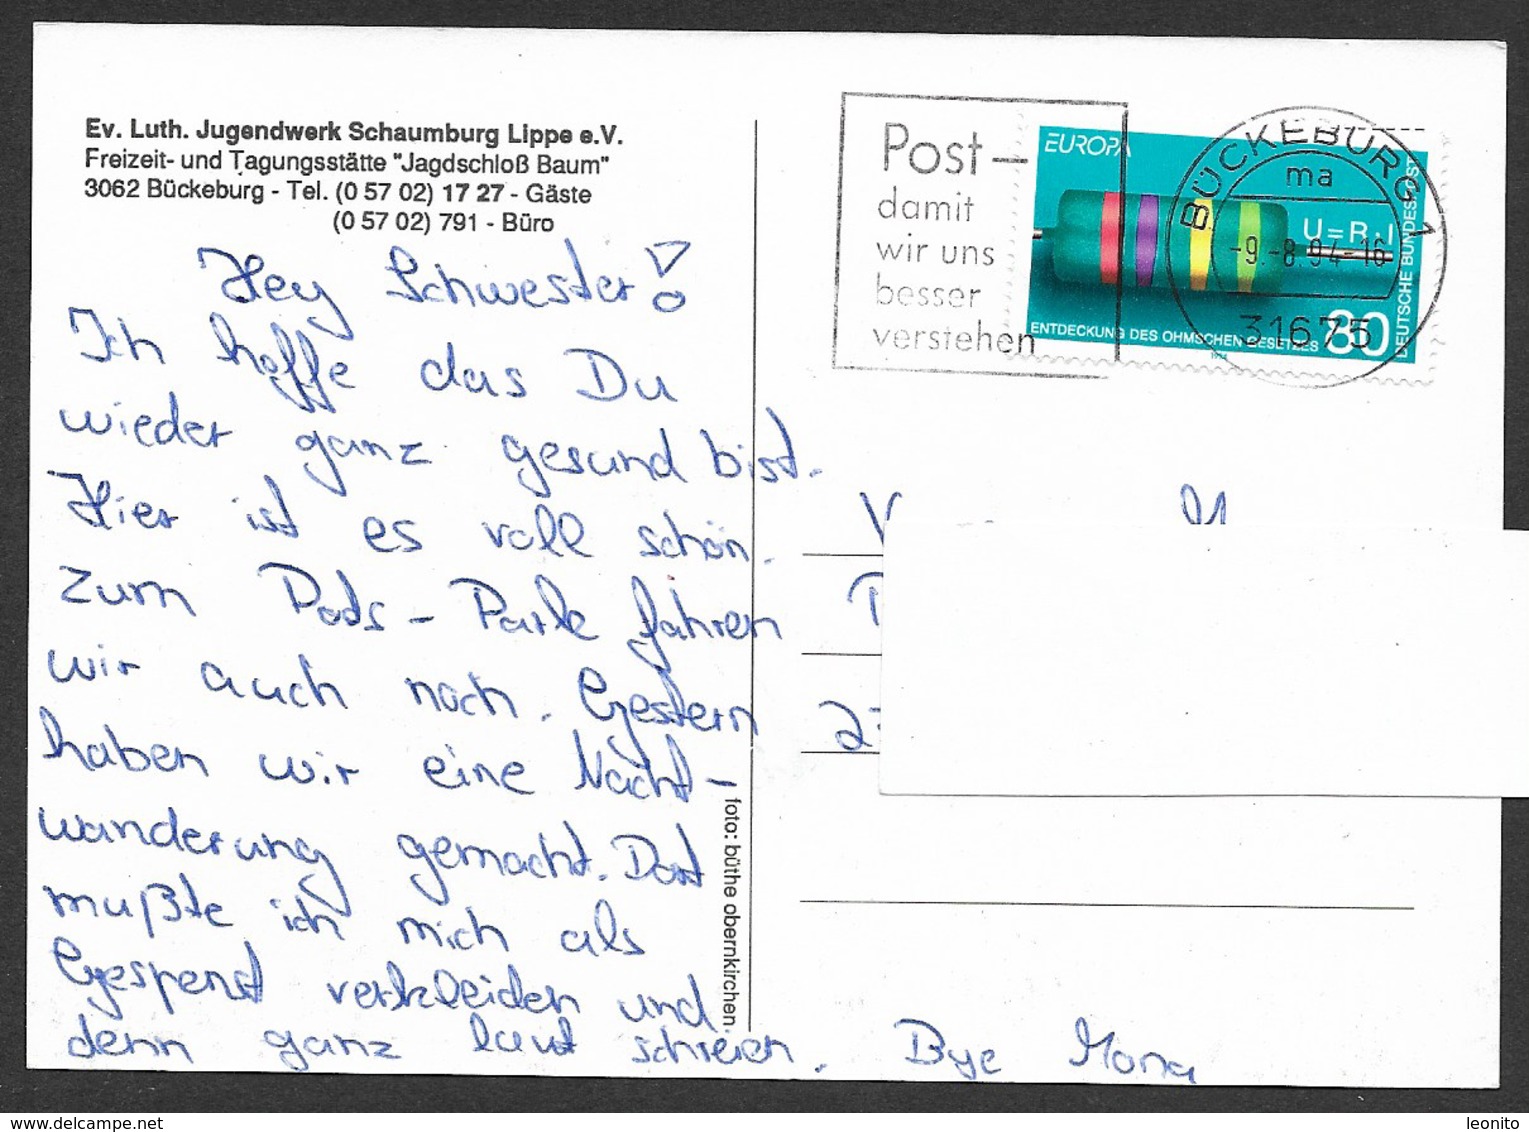 Ev. Luth. Jugendwerk Schaumburg Lippe e.V.
Freizeit- und Tagungsstätte "Jagdschloß Baum"
3062 Bückeburg - Tel. (0 57 02) 17 27 - Gäste
(0 57 02) 791 - Büro
Hey Schwester!
Ich hoffe das Du
wieder ganz gesund bist.
Hier ist es voll schön.
Zum Pods-Park fahren
wir auch noch. Gestern
haben wir eine Nacht-
wanderung gemacht. Dort
mußte ich mich als
Gespenst verkleiden und
denn ganz laut schreien. Bye Mona
foto: büthe obernkirchen
Post-
damit
wir uns
besser
verstehen
EUROPA
U=R·I
ENTDECKUNG DES OHMSCHEN GESETZES 80
DEUTSCHE BUNDESPOST
BÜCKEBURG 1
ma
-9.-8.94-16
31675
leonito
delcampe.net